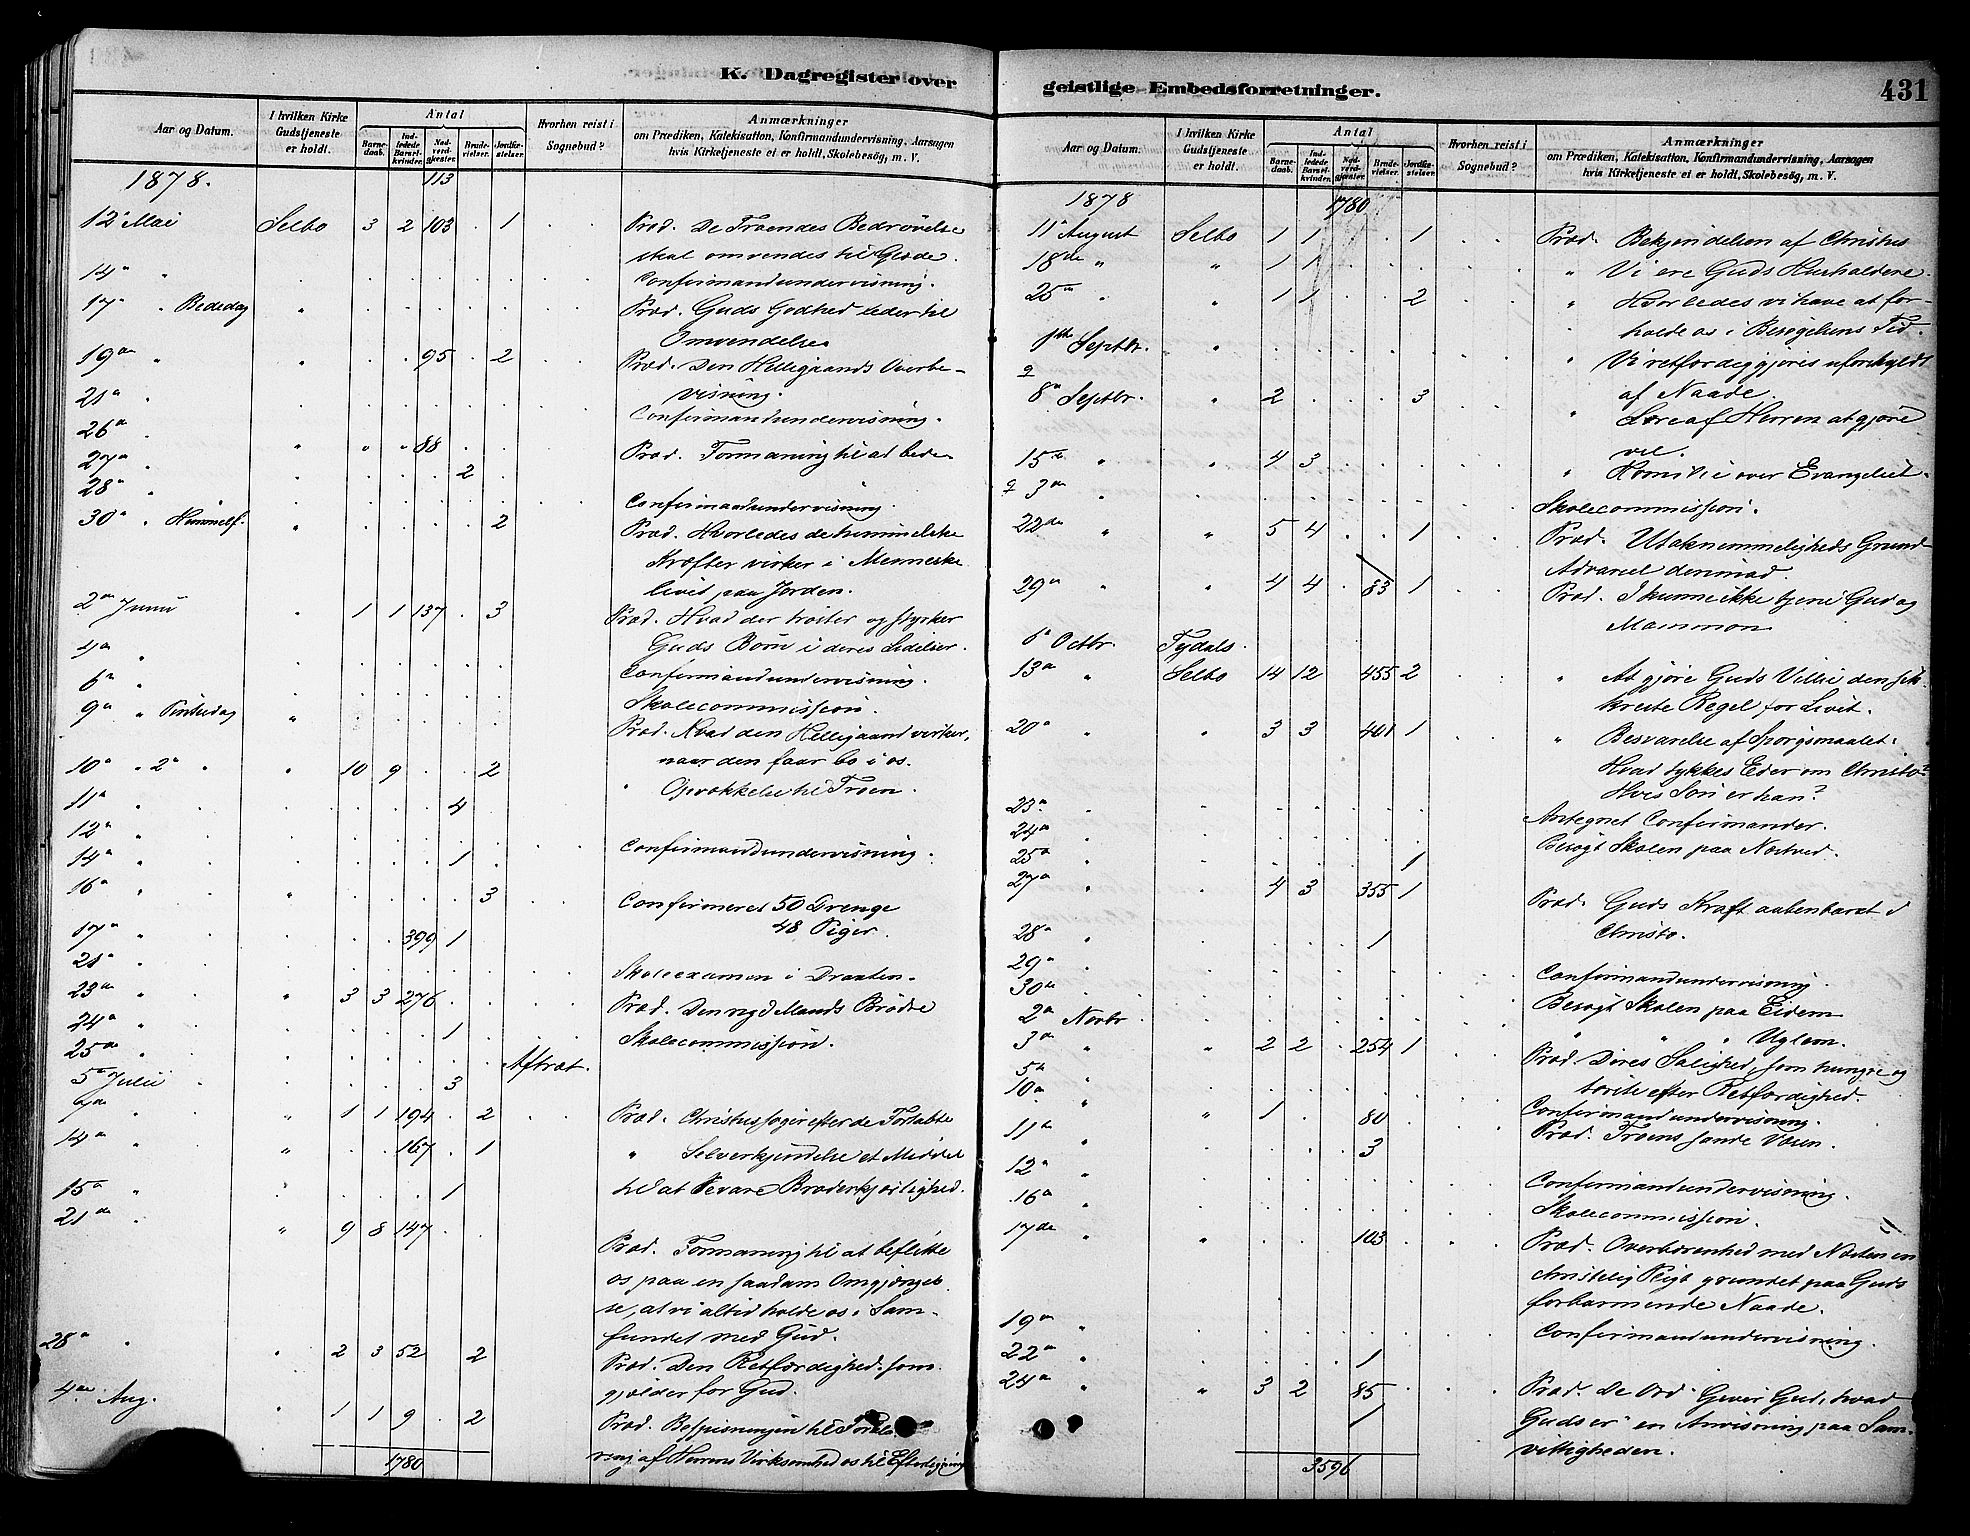 K. Dagregister over
Aar og Datum.
I hvilken Kirke Gudstjeneste er holdt.
Antal
Barne-daab.
Ind-ledede Barsel-kvinder.
Nad-verd-gjester.
Brude-vielser.
Jordfæ-stelser.
Hvorhen reist i Sognebud?
Anmærkninger
om Prædiken, Katekisation, Konfirmandundervisning, Aarsagen
hvis Kirketjeneste ei er holdt, Skolebesøg, m. V.
1878. 113
12te Mai Selbo 3 2 103 . 1 Præd. De Troendes Bedrøvelse
skal omvendes til Glæde.
14de " Confirmandundervisning.
17de " Bededag " Præd. Guds Godhed leder til
Omvendelse
19de " " 95 . 2 Præd. Den Helligaands Overbe-
visning.
21de " Confirmandundervisning.
26de " " " " 88 Præd. Formaning til at bede
27de " 2
28de " Confirmandundervisning.
30te " Himmelf. " 2 Præd. Hvorledes de himmelske
Kræfter virker i Menneske
livet paa Jorden.
2den Junii " 1 1 137 . 3 Præd. Hvad der trøster og styrker
Guds Børn i deres Lidelser.
4de " Confirmandundervisning.
6te " Skolecommission.
9de " Pintsedag " Præd. Hvad den Helligaand virker,
naar den faar bo i os.
10de " 2den " " 10 9 . . 2 " Opvækkelse til Troen.
11te " 4
12te " Confirmandundervisning.
14de " 1
16de " " 3 Confirmeret 50 Drenge
48 Piger.
17de " 399 1
21de " Skoleexamen i Draxten.
23de " " 3 3 276 Præd. Den rige Mands Brødre
24de " 1 Skolecommission.
25de " Aftræt.
5te Julii 3
7de " " 1 1 194 . 2 Præd. Christus søger efter de Fortabte
14de " " 167 . 1 " Selverkjendelse et Middel
til at bevare Broderkjærlighed.
15de " 1
21de " " 9 8 147 Præd. Formaning til at beflitte
os paa en saadan Omgjængel-
se, at vi altid holde os i Sam-
fundet med Gud.
28de " " 2 3 52 . 2 Præd. Den Retfærdighed som
gjælder for Gud.
4de Aug. " 1 1 9 . 2 Præd. Bespisningen til
af Herrens Virksomhed os til Efterligning
1780
geistlige Embedsforretninger. 431
Aar og Datum.
I hvilken Kirke Gudstjeneste er holdt.
Antal
Barne-daab.
Ind-ledede Barsel-kvinder.
Nad-verd-gjester.
Brude-vielser.
Jordfæ-stelser.
Hvorhen reist i Sognebud?
Anmærkninger
om Prædiken, Katekisation, Konfirmandundervisning, Aarsagen
hvis Kirketjeneste ei er holdt, Skolebesøg, m. V.
1878 1780
11te August Selbo 1 1 . . 1 Præd. Bekjendelsen af Christus
18de " " 1 1 " Vi ere Guds Husholdere.
25de " " 1 1 . . 2 " Hvorledes vi have at for-
holde os i Besøgelsens Tid.
1ste Septbr. " " Vi retfærdiggjøres uforskyldt
af Naade.
8de Septbr. " 2 . . . 3 " Lære af Herren at gjøre
vel.
15de " " 4 3 " Homili over Evangeliet.
3de " Skolecommission.
22de " " 5 4 . . 1 Præd. Utaknemmeligheds Grund
Advarsel derimod.
29de " " 4 4 . 83 1 Præd. I kunne ikke tjene Gud og
Mammon
6te Octbr. Tydals.
13de " Selbo 14 12 455 2 " At gjøre Guds Villie den sik-
kreste Regel for Livet.
20de " " 3 3 401 1 " Besvarelse af Spørgsmaalet:
Hvad tykkes Eder om Christo?
Hvis Søn er han?
23de " Antegnet Confirmander.
24de " Besøgt Skolen paa Næstved.
25de " 1
27de " " 4 3 355 1 Præd. Guds Kraft aabenbaret i
Christo.
28de " 1
29de " Confirmandundervisning.
30te " Besøgt Skolen paa Eidem
2den Novbr. " " " Uglem.
3de " " 2 2 254 1 Præd. Deres Salighed, som hungre og
tørste efter Retfærdighed.
5te " Confirmandundervisning.
10de " " 1 80 Præd. Troens sande Væsen.
11te " 3
12te " Confirmandundervisning.
16de " Skolecommission.
17de " " 103 Præd. Overbærenhed med Næsten en
christelig Pligt grundet paa Guds
forbarmende Naade.
19de " Confirmandundervisning.
22de " 1
24de " " 3 2 85 Præd. De Ord "Giver Gud, hvad
Guds er" en Anvisning paa Sam-
vittigheden.
1
3596